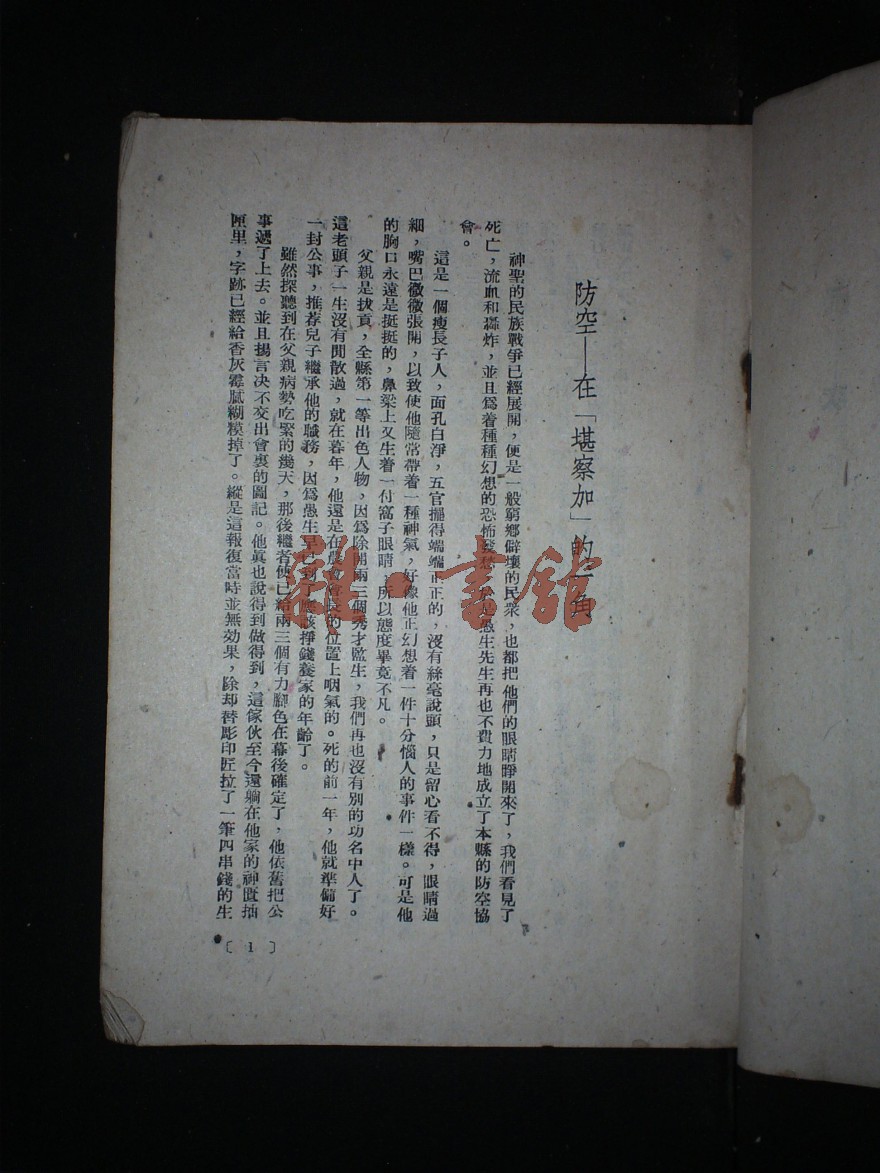 防空—在「堪察加」的一角
神聖的民族戰爭已經展開，便是一般窮鄉僻壤的民衆，也都把他們的眼睛睜開來了，我們看見了
死亡，流血和轟炸，並且爲着種種幻想的恐怖發愁，於是愚生先生再也不費力地成立了本縣的防空協
會。
這是一個瘦長子人，面孔白淨，五官擺得端端正正的，沒有絲毫說頭，只是留心看不得，眼睛過
細，嘴巴微微張開，以致使他隨常帶着一種神氣，好像他正幻想着一件十分惱人的事件一樣。可是他
的胸口永遠是挺挺的，鼻梁上又生着一付窩子眼睛，所以態度畢竟不凡。
父親是拔貢，全縣第一等出色人物，因爲除開兩三個秀才監生，我們再也沒有別的功名中人了。
這老頭子一生沒有閒散過，就在暮年，他還是在農會會長的位置上咽氣的。死的前一年，他就準備好
一封公事，推荐兒子繼承他的職務，因爲愚生早已到了應該掙錢養家的年齡了。
雖然探聽到在父親病勢吃緊的幾天，那後繼者便已給兩三個有力腳色在幕後確定了，他依舊把公
事遞了上去。並且揚言决不交出會裏的圖記。他眞也說得到做得到，這傢伙至今還躺在他家的神龕抽
匣里，字跡已經給香灰霉膩糊糢掉了。縱是這報復當時並無効果，除却替彫印匠拉了一筆四串錢的生
〔1〕
雜·書館